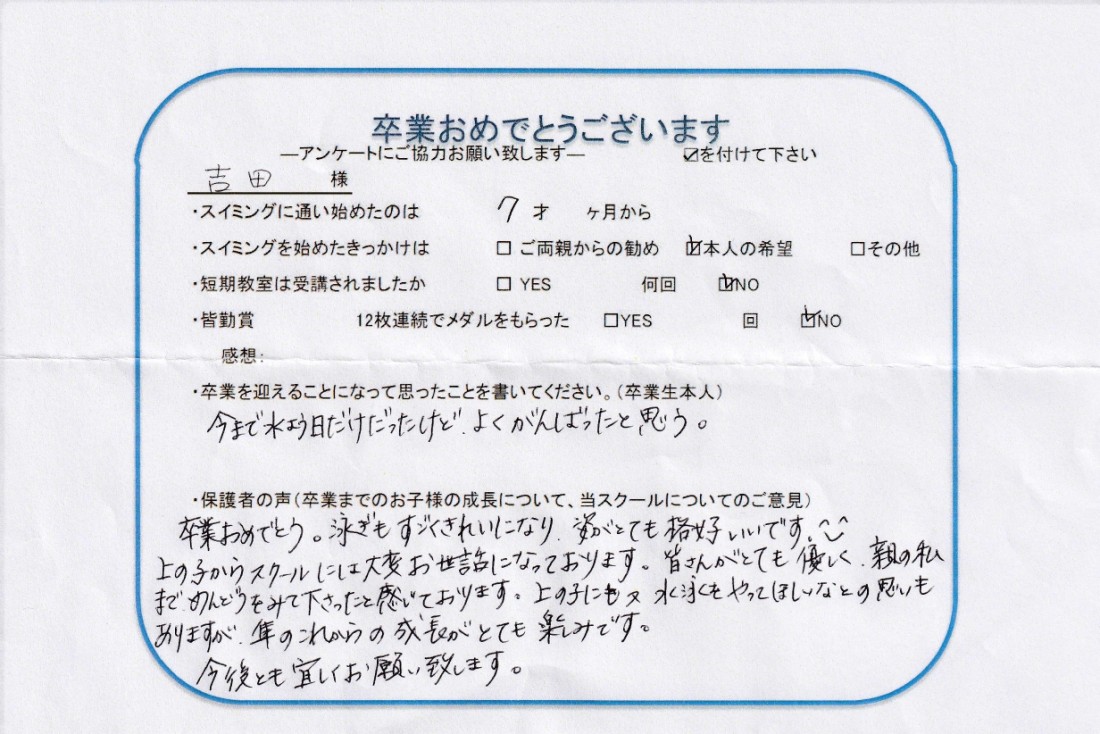 卒業おめでとうございます
―アンケートにご協力お願い致します― ☑を付けて下さい
吉田 様
・スイミングに通い始めたのは 7才 ヶ月から
・スイミングを始めたきっかけは □ ご両親からの勧め ☑本人の希望 □その他
・短期教室は受講されましたか □ YES 何回 ☑NO
・皆勤賞 12枚連続でメダルをもらった □YES 回 ☑NO
感想:
・卒業を迎えることになって思ったことを書いてください。(卒業生本人)
今まで水よう日だけだったけど、よくがんばったと思う。
・保護者の声(卒業までのお子様の成長について、当スクールについてのご意見)
卒業おめでとう。泳ぎもすごくきれいになり、姿がとても格好いいです。^^
上の子からスクールには大変お世話になっております。皆さんがとても優しく、親の私
までめんどうをみて下さったと感じております。上の子にも又水泳をやってほしいなとの思いも
ありますが、隼のこれからの成長がとても楽しみです。
今後とも宜しくお願い致します。